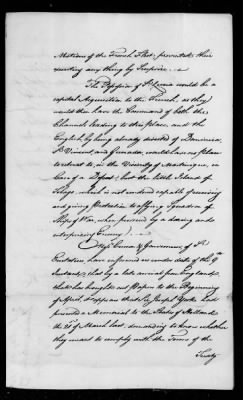 Motions of the French Fleet, prevented their
executing any thing by Surprise.
The Possession of St. Lucia would be a
capital Acquisition to the French, as they
would then have the Command of both the
Channels leading to the Island, and the
English, by being already divested of Dominica,
St. Vincent, and Grenada, would have no place
to retreat to, in the Vicinity of Martinique, in
Case of a Defeat, but the little Island of
which is not rendered capable of receiving
and giving Protection to a strong Squadron of
Ships of War, when pursued by a daring and
enterprising Enemy.
Messrs. Governeur of St.
Eustatius, have informed us under date of the 9th
Instant, that by a late arrival from England,
that has brought out Papers to the Beginning
of April, it appears that Sir Joseph Yorke had
presented a Memorial to the States of Holland
the 21st of March last, demanding to know whether
they meant to comply with the Terms of the
Treaty